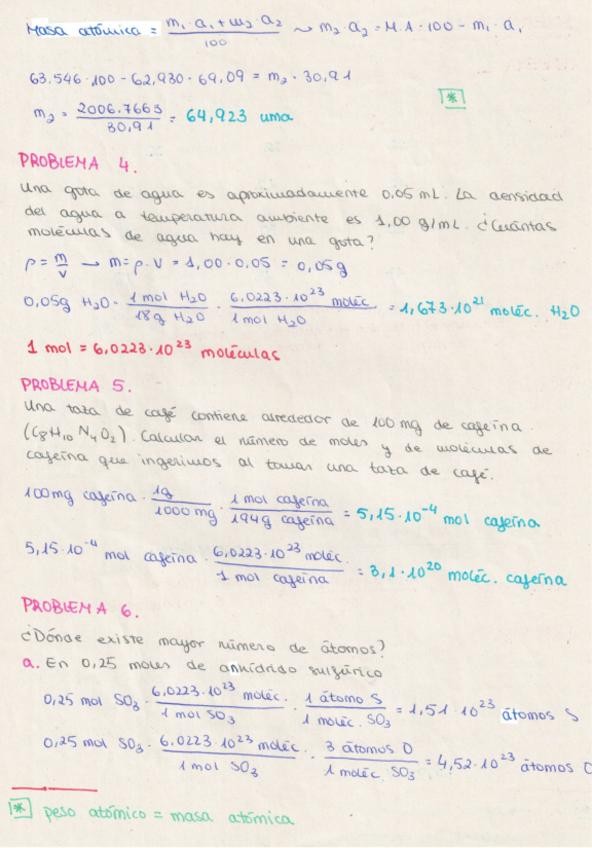 Masa atómica = (m₁·a₁ + m₂·a₂)/100 ~> m₂·a₂ = M.A·100 - m₁·a₁
63.546·100 - 62,930·69,09 = m₂·30,91
m₂ = 2006.7663/30,91 = 64,923 uma
*
PROBLEMA 4.
Una gota de agua es aproximadamente 0,05 mL. La densidad
del agua a temperatura ambiente es 1,00 g/mL. ¿Cuántas
moléculas de agua hay en una gota?
ρ = m/v → m = ρ·V = 1,00·0,05 = 0,05g
0,05g H₂O · (1 mol H₂O)/(18g H₂O) · (6,0223·10²³ moléc)/(1 mol H₂O) = 1,673·10²¹ moléc. H₂O
1 mol = 6,0223·10²³ moléculas
PROBLEMA 5.
Una taza de café contiene alrededor de 100 mg de cafeína.
(C8H10 N4O2). Calcular el número de moles y de moléculas de
cafeína que ingerimos al tomar una taza de café.
100mg cafeína · (1g)/(1000 mg) · (1 mol cafeína)/(194g cafeína) = 5,15·10⁻⁴ mol cafeína
5,15·10⁻⁴ mol cafeína · (6,0223·10²³ moléc.)/(1 mol cafeína) = 3,1·10²⁰ moléc. cafeína
PROBLEMA 6.
¿Dónde existe mayor número de átomos?
a. En 0,25 moles de anhídrido sulfúrico
0,25 mol SO₃ · (6,0223·10²³ moléc.)/(1 mol SO₃) · (1 átomo S)/(1 moléc. SO₃) = 1,51·10²³ átomos S
0,25 mol SO₃ · (6,0223·10²³ moléc)/(1 mol SO₃) · (3 átomos O)/(1 moléc SO₃) = 4,52·10²³ átomos O
* peso atómico = masa atómica